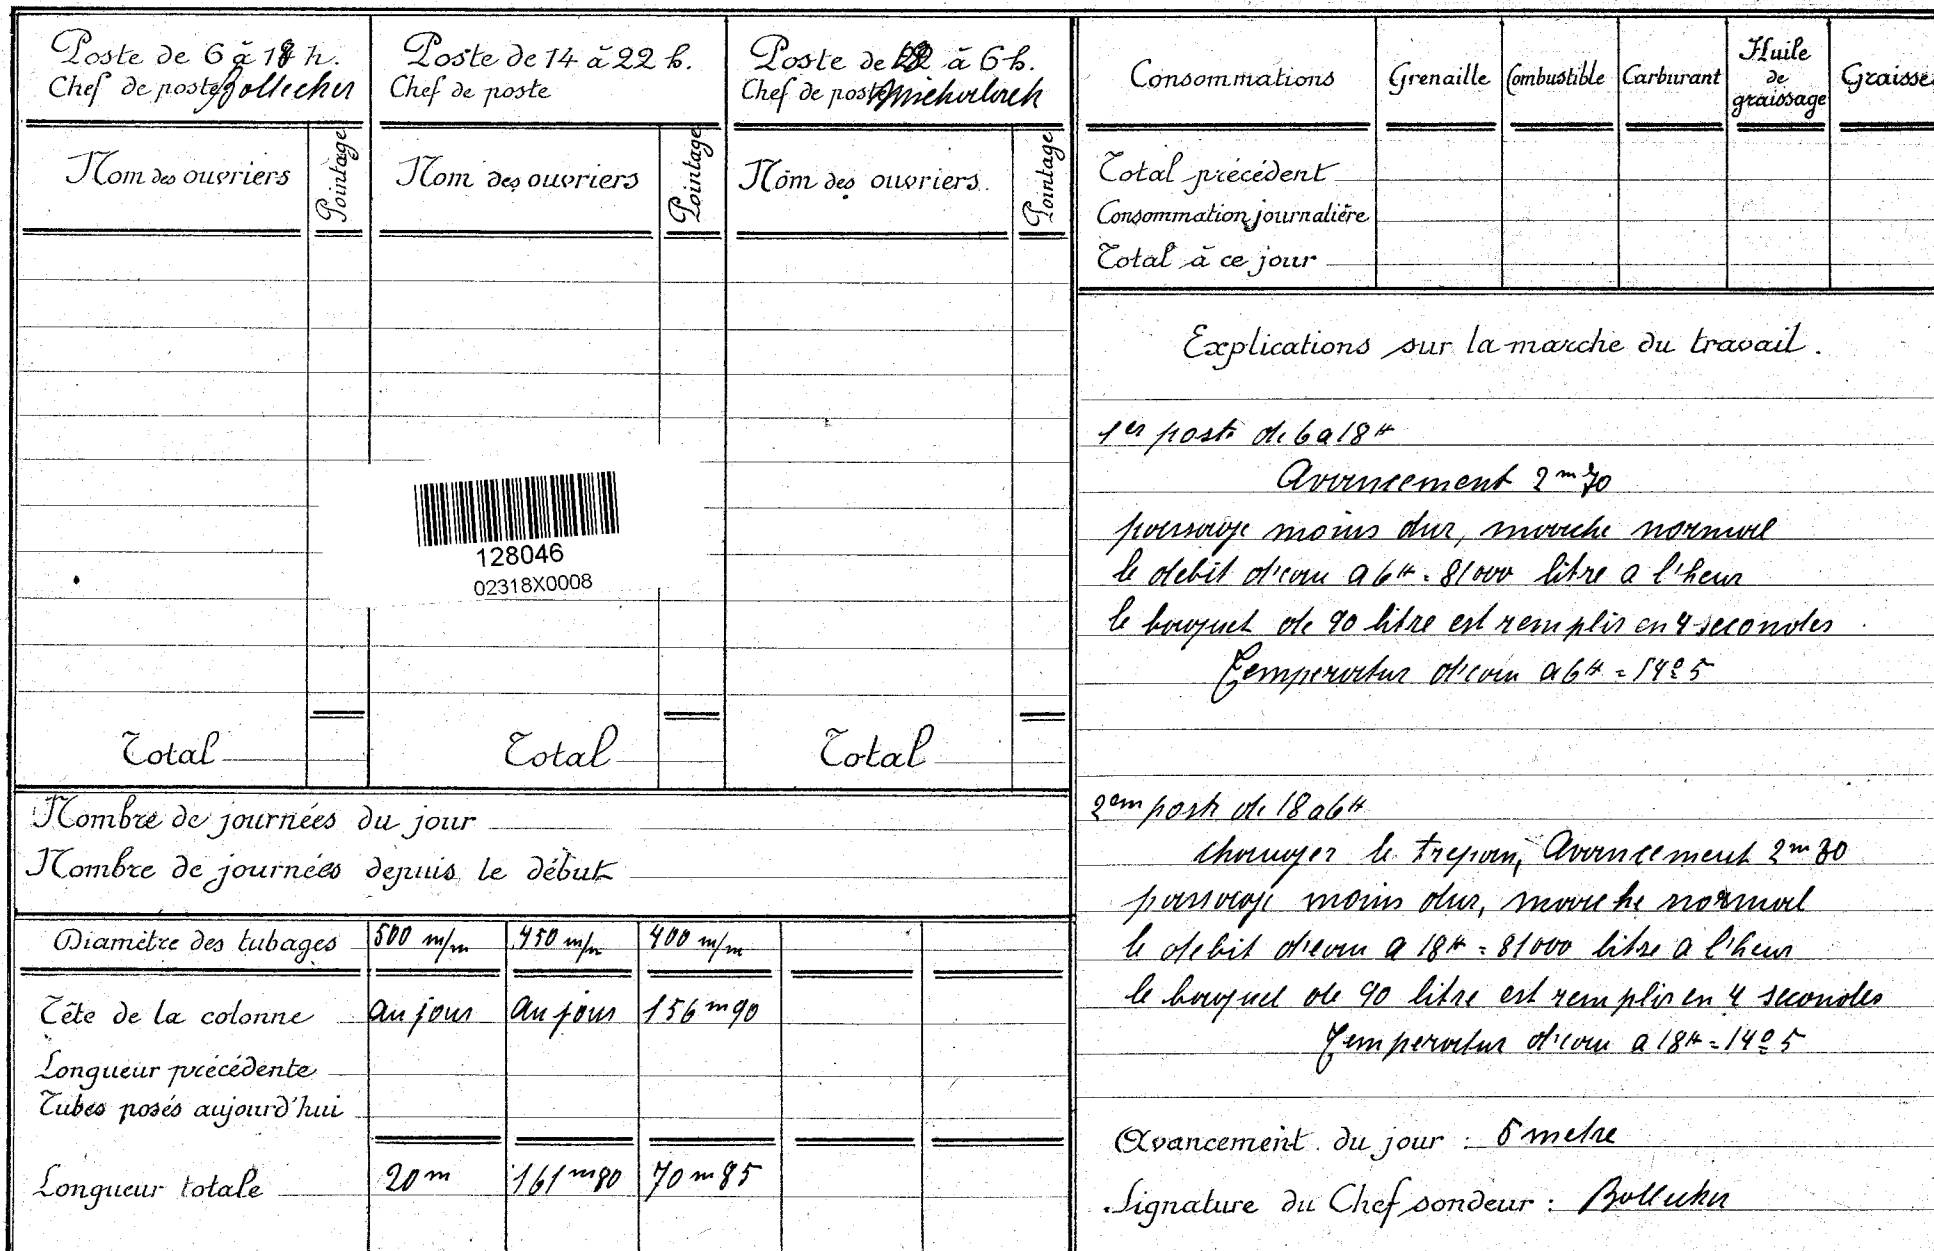 Poste de 6 à 18 h.
Chef de poste Bollecher
Poste de 14 à 22 h.
Chef de poste
Poste de à 6 h.
Chef de poste
Nom des ouvriers
Pointage
Nom des ouvriers
Pointage
Nom des ouvriers
Pointage
128046
02318X0008
Total
Total
Total
Nombre de journées du jour
Nombre de journées depuis le début
Diamètre des tubages 500 m/m 450 m/m 400 m/m
Tête de la colonne au jour au jour 156 m 90
Longueur précédente
Tubes posés aujourd'hui
Longueur totale 20 m 161 m 80 70 m 85
Consommations Grenaille Combustible Carburant Huile de graissage Graisse
Total précédent
Consommation journalière
Total à ce jour
Explications sur la marche du travail.
1er poste de 6 a 18 H
Avancement 2 m 70
passage moins dur, marche normal
le debit d'eau a 6 H = 81000 litre a l'heur
le baquet de 90 litre est remplir en 4 secondes
Temperatur d'eau a 6 H = 14° 5
2em poste de 18 a 6 H
changer le trepan, Avancement 2 m 30
passage moins dur, marche normal
le debit d'eau a 18 H = 81000 litre a l'heur
le baquet de 90 litre est remplir en 4 secondes
Temperatur d'eau a 18 H = 14° 5
Avancement du jour : 5 metre
Signature du Chef sondeur : Bollecher